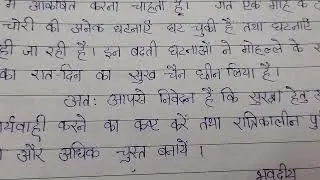 म आकर्षित करना चाहता हूँ। गत एक माह के
चोरी की अनेक घटनाएँ घट चुकी हैं तथा घटनाएँ
ही जा रही हैं। इन बढ़ती घटनाओं ने मोहल्ले के
का रात-दिन का सुख चैन छीन लिया है।
अतः आपसे निवेदन है कि सुरक्षा हेतु
र्यवाही करने का कष्ट करें तथा रात्रिकालीन
और अधिक चुस्त बनायें।
भवदीय